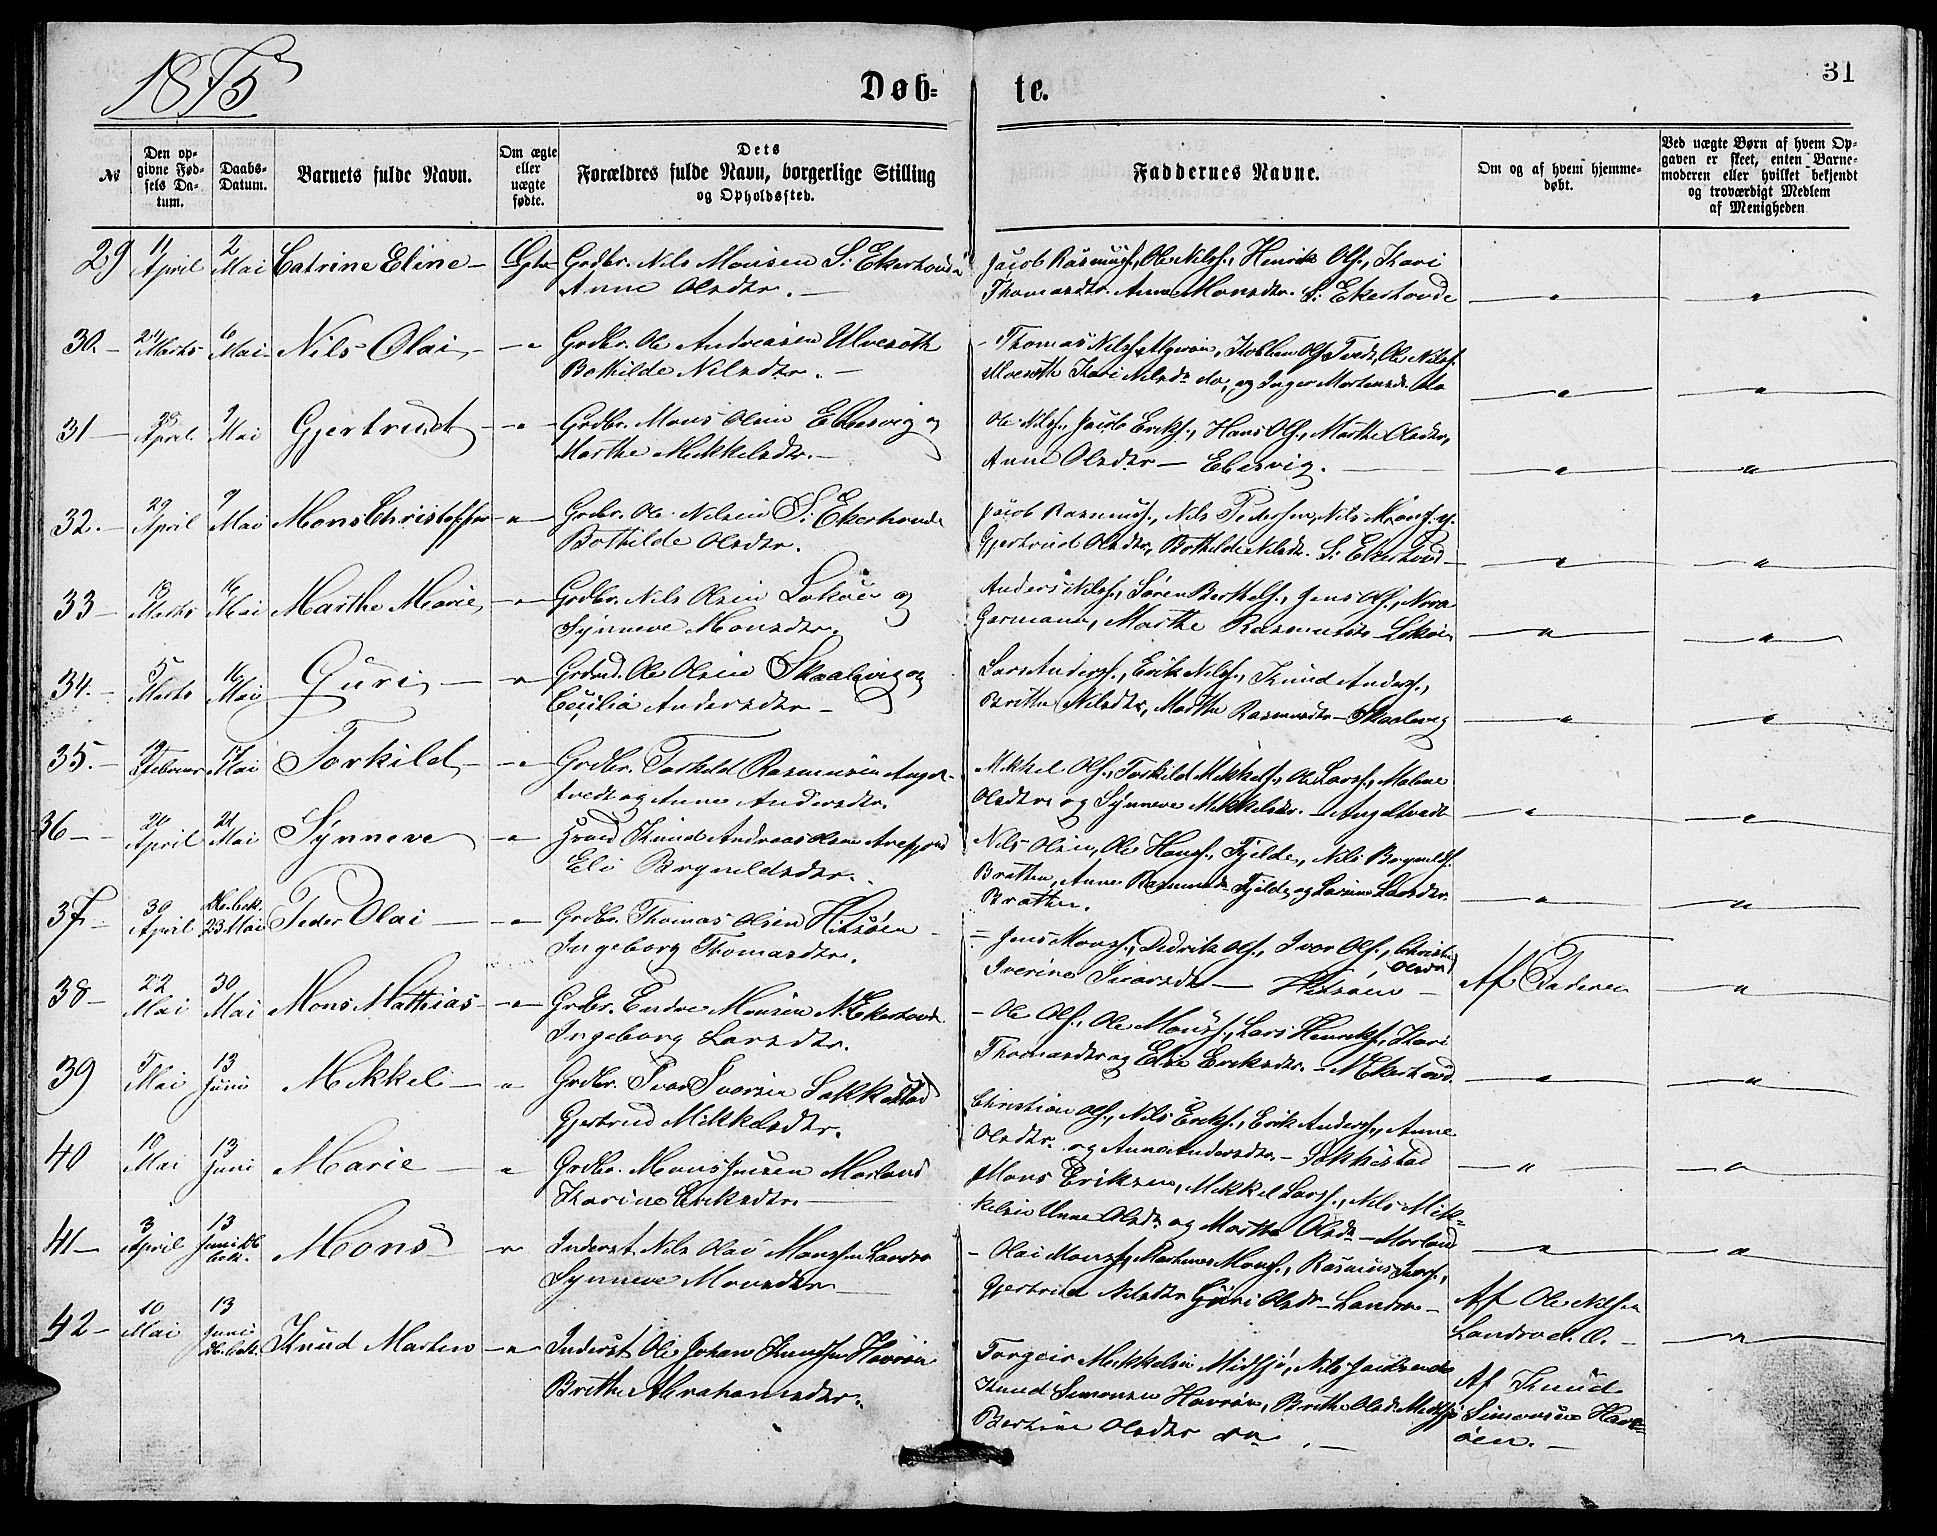 1875
Døb-
te.
31
№
Den op-
givne Fød-
sels Da-
tum.
Daabs-
Datum.
Barnets fulde Navn.
Om ægte
eller
uægte
fødte.
Dets
Forældres fulde Navn, borgerlige Stilling
og Opholdssted.
Faddernes Navne.
Om og af hvem hjemme-
døbt.
Ved uægte Børn af hvem Op-
gaven er skeet, enten Barne-
moderen eller hvilket bekjendt
og troværdigt Medlem
af Menigheden
29 11 April 2 Mai Catrine Eline Grdbr. Nils Monsen S. Ekerhovd
Anne Olsdtr.
Jacob Rasmusf., Ole Nilsf., Henrik Olf., Kari
Thomasdtr. Anne Monsdtr. S. Ekerhovde
30. 24 Marts 6 Mai Nils Olai Grdbr. Ole Andreasen Ulvesøth
Bothilde Nilsdtr.
Thomas Nilsf. Olf. Ole Nilsf.
Kari Nilsdr do, og Inger Mortensd. do
31 28 April 9 Mai Gjertrud Grdbr. Mons Olsen Ebbesvig og
Marthe Mikkelsdtr.
Ole Nilsf., Jacob Eriksf., Hans Olf., Marthe Olsdtr,
Anne Olsdtr Ebesvig.
32. 29 April 9 Mai Mons Christoffer Grdbr. Ole Nilsen S. Ekerhovde
Bothilde Olsdtr.
Jacob Rasmusf., Nils Pedersen, Nils Monsf. og
Gjertrud Olsdtr, Bothilde Nilsdr. S. Ekerhovd
33 13 Marts 16 Mai Marthe Marie Grdbr. Nils Olsen Lokøen og
Synneve Monsdtr.
Anders Nilsf., Søren Berthelsf., Jens Olf.,
Germann, Marthe Rasmusdtr Lokøen
34. 5 Marts 16 Mai Guri Grdmd. Ole Olsen Skaalevig og
Cecilia Andersdtr
Lars Andersf., Erik Nilsf., Knud Andersf.,
Brithe Nilsdtr, Marthe Rasmusdtr Skaalevig
35. 19 Februar 17 Mai Torkild Grdbr. Torkild Rasmusen Angel-
tvedt og Anne Andersdtr.
Mikkel Olf., Torkild Mikkelsf., Ole Larsf., Malene
Olsdtr. og Synneve Mikkelsdtr. Angeltvedt
36 20 April 21 Mai Synneve Knud Andreas Olsen Arefjord
Eli Brynildsdtr.
Nils Olsen, Ole Hansf., Fjelde, Nils Brynildsf.
Bratten, Anne Rasmusdr. Fjelde, og Larsdtr.
Bratten.
37 30 April 23 Mai Peder Olai Grdbr. Thomas Olsen Hitsøen
Ingeborg Thomasdtr.
Jens Monsf., Didrik Olf., Ivar Olf., Christi
Olsdtr
Iverine Ivarsdtr Hitsøen
Af Faderen
38 22 Mai 30 Mai Mons Mathias Grdbr. Endre Monsen N. Ekerhovd
Ingeborg Larsdtr.
Ole Olf., Ole Monsf., Lars Henriksf., Kari
Thomasdtr og Else Eriksdtr. N. Ekerhovd.
39 5 Mai 13 Juni Mikkel Grdbr. Ivar Ivarsen Søkkestad
Gjertrud Mikkelsdtr.
Christian Olf., Nils Eriksf., Erik Andersf., Anne
Olsdtr. og Anna Andersdtr. Søkkestad
40 10 Mai 13 Juni Marie Grdbr. Mons Jensen Morland
Karine Eriksdtr.
Mons Eriksen, Mikkel Larsf., Nils Mik-
kelsen Unne Olsdtr og Marthe Olsdr Morland
41 3 April 13 Juni Mons Inderst. Nils Olai Monsen Landro
Synneve Monsdtr
Olai Monsf., Martinus Monsf., Rasmus Larsf.,
Gjertrud Nilsdtr Guri Olsdr Landro
Af Ole Nilsen
Landroe.
42 10 Mai 13 Juni Knud Morten Inderst Ole Johan Knudsen Havrøen
Brithe Abrahamsdtr.
Torgeir Mikkelsen Midsjø, Nils
Knud Simonsen Havrøen, Brithe Olsd. Midsjø
Bertine Olsdtr do
Af Knud
Simonsen Havr-
øen.